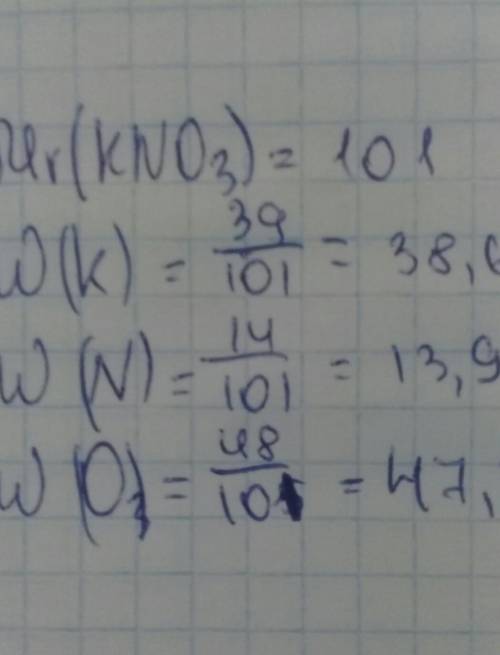 Mr(KNO₃) = 101
W(K) = 39/101 = 38,6
W(N) = 14/101 = 13,9
W(O) = 48/101 = 47,